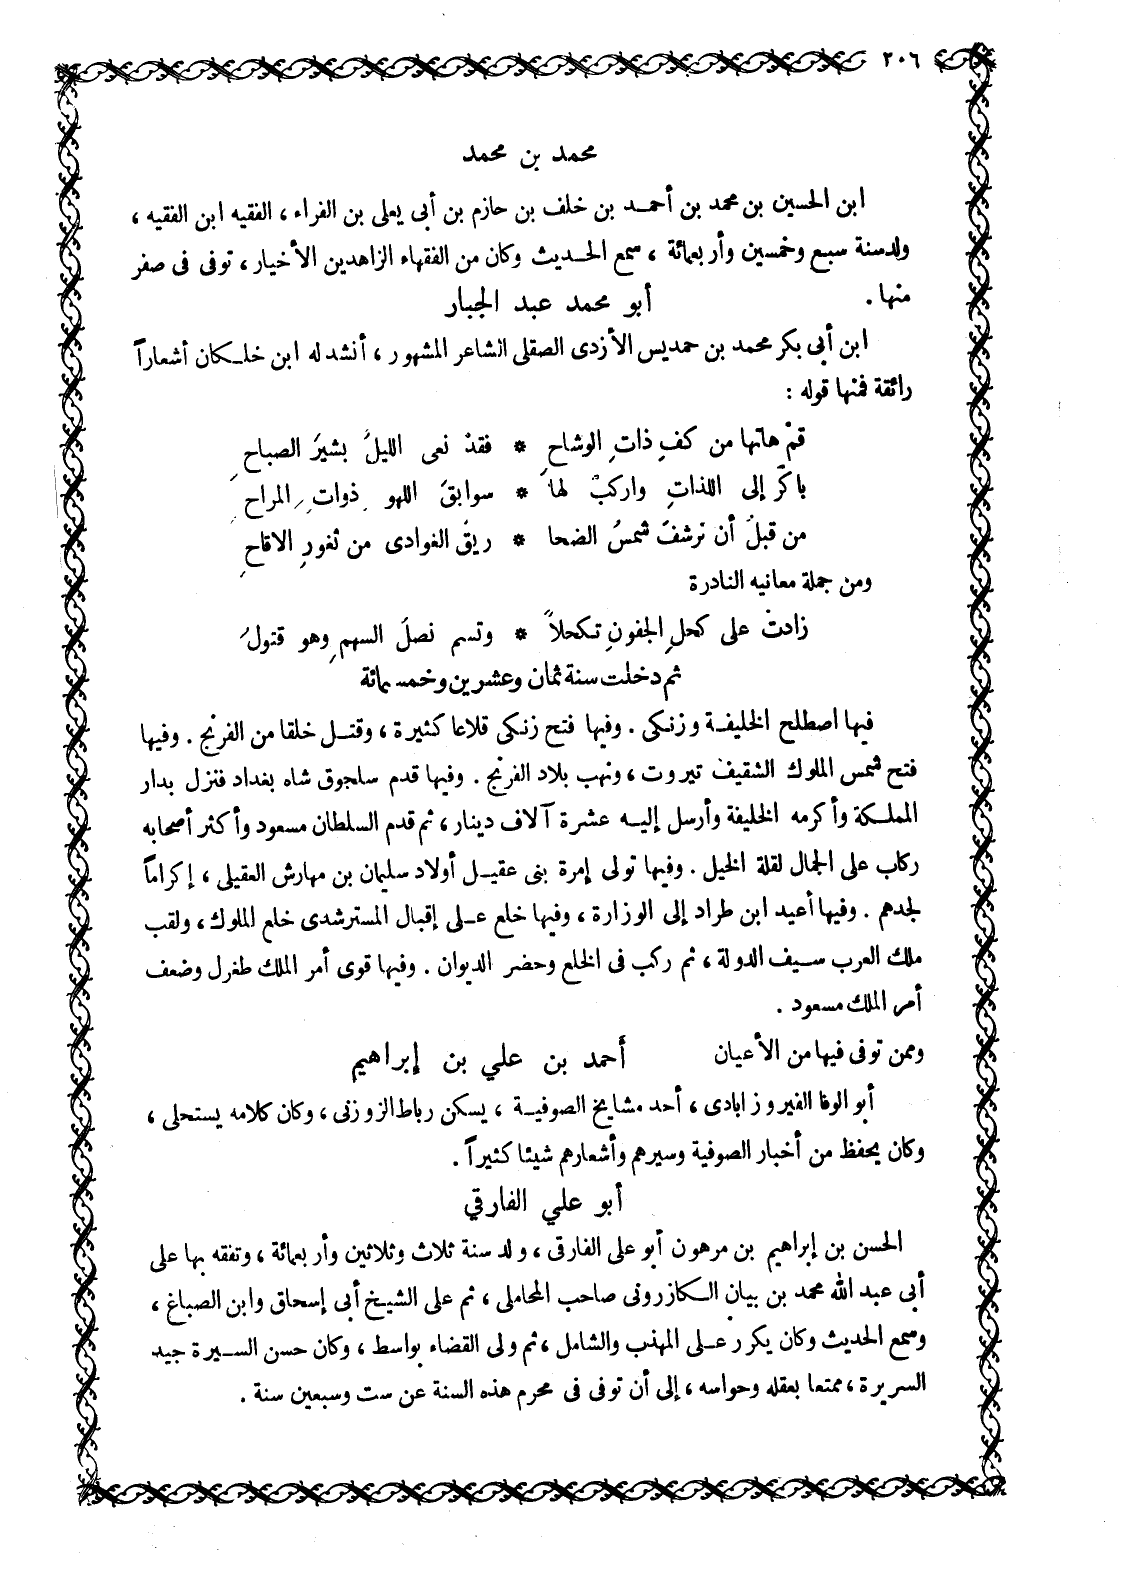 ٢٠٦
محمد بن محمد
ابن الحسين بن محمد بن أحمد بن خلف بن حازم بن أبي يعلى بن الفراء ، الفقيه ابن الفقيه ،
ولد سنة سبع وخمسين وأربعمائة ، سمع الحديث وكان من الفقهاء الزاهدين الأخيار ، توفى فى صفر
منها .
أبو محمد عبد الجبار
ابن أبى بكر محمد بن حمديس الأزدى الصقلى الشاعر المشهور ، أنشد له ابن خلكان أشعاراً
رائقة فمنها قوله :
قمْ هاتها من كفِ ذاتِ الوشاحِ * فقدْ نعى الليلُ بشيرَ الصباحِ
باكرْ إلى اللذاتِ واركبْ لها * سوابقَ اللهو ذواتِ المراحِ
من قبلُ أن ترشفَ شمسُ الضحا * ريقَ الغوادى من ثغورِ الاقاحِ
ومن جملة معانيه النادرة
زادتْ على كحلِ الجفونِ تكحلاً * وتسم نصلَ السهمِ وهو قتولُ
ثم دخلت سنة ثمان وعشرين وخمسمائة
فيها اصطلح الخليفة وزنكى . وفيها فتح زنكى قلاعا كثيرة ، وقتل خلقا من الفرنج . وفيها
فتح شمس الملوك الشقيف تيروت ، ونهب بلاد الفرنج . وفيها قدم سلجوق شاه بغداد فنزل بدار
المملكة وأكرمه الخليفة وأرسل إليه عشرة آلاف دينار ، ثم قدم السلطان مسعود وأكثر أصحابه
ركاب على الجمال لقلة الخيل . وفيها تولى إمرة بنى عقيل أولاد سليمان بن مهارش العقيلى ، إكراماً
لجدهم . وفيها أعيد ابن طراد إلى الوزارة ، وفيها خلع على إقبال المسترشدى خلع الملوك ، ولقب
ملك العرب سيف الدولة ، ثم ركب فى الخلع وحضر الديوان . وفيها قوى أمر الملك طغرل وضعف
أمر الملك مسعود .
وممن توفى فيها من الأعيان أحمد بن علي بن إبراهيم
أبو الوفا الفيروزابادى ، أحد مشايخ الصوفية ، يسكن رباط الزوزنى ، وكان كلامه يستحلى ،
وكان يحفظ من أخبار الصوفية وسيرهم وأشعارهم شيئا كثيراً .
أبو علي الفارقي
الحسن بن إبراهيم بن مرهون أبو على الفارقى ، ولد سنة ثلاث وثلاثين وأربعمائة ، وتفقه بها على
أبى عبد الله محمد بن بيان الكازرونى صاحب المحاملى ، ثم على الشيخ أبى إسحاق وابن الصباغ ،
وسمع الحديث وكان يكرر على المهذب والشامل ، ثم ولى القضاء بواسط ، وكان حسن السيرة جيد
السريرة ، ممتعا بعقله وحواسه ، إلى أن توفى فى محرم هذه السنة عن ست وسبعين سنة .